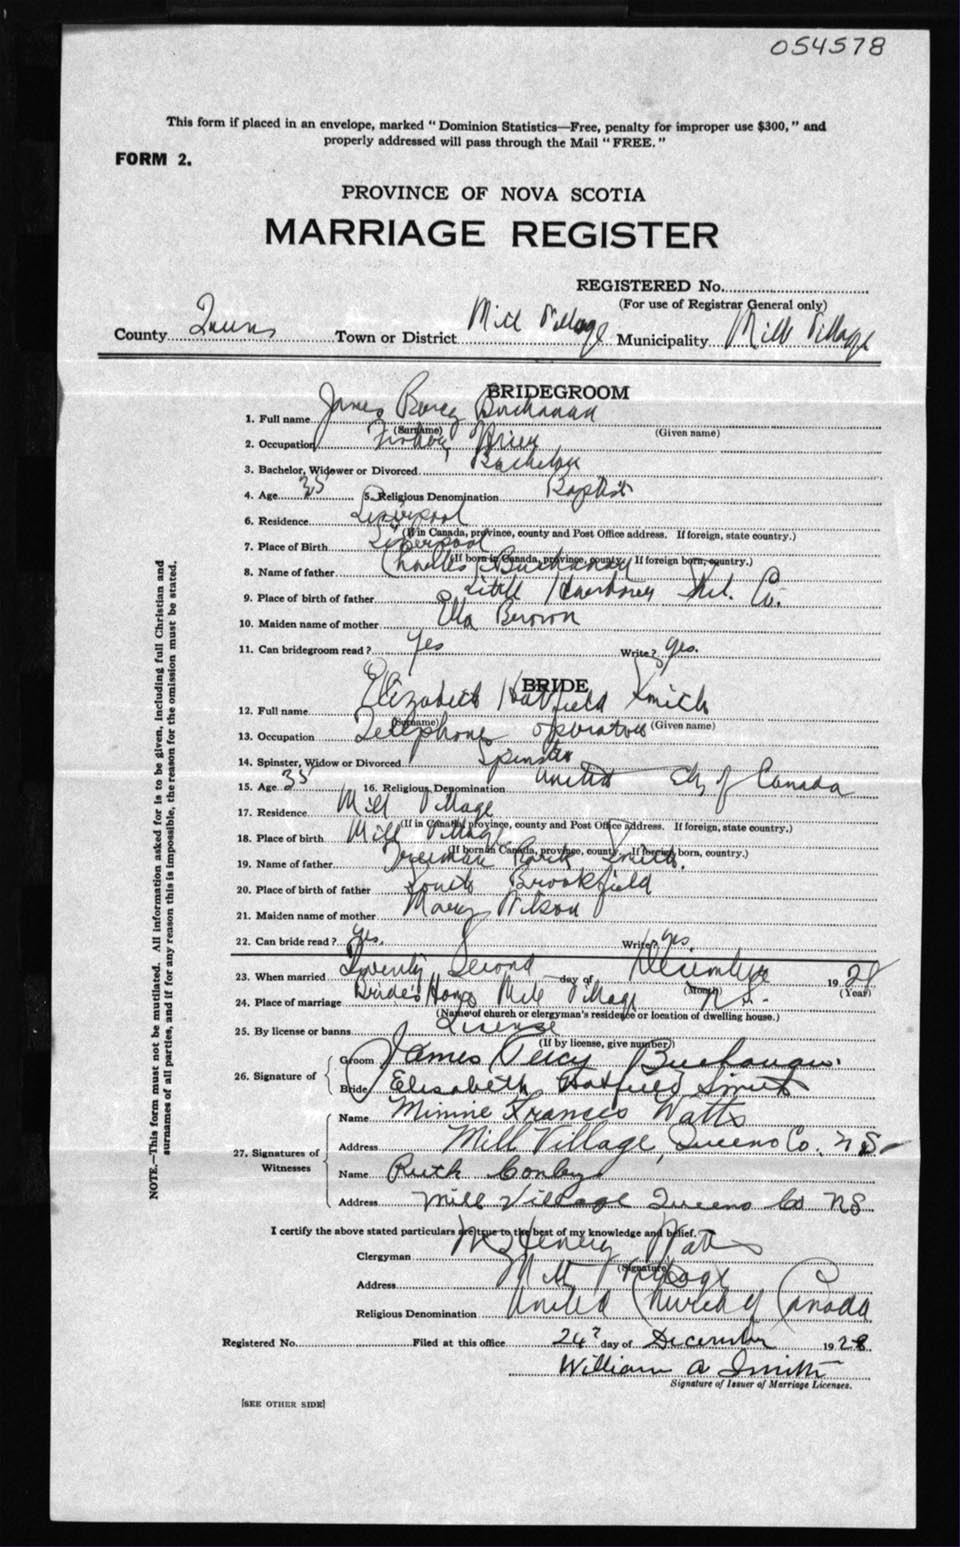 054578
This form if placed in an envelope, marked "Dominion Statistics—Free, penalty for improper use $300," and
properly addressed will pass through the Mail "FREE."
FORM 2.
PROVINCE OF NOVA SCOTIA
MARRIAGE REGISTER
REGISTERED No.
(For use of Registrar General only)
County Queens Town or District Mill Village Municipality Mill Village
BRIDEGROOM
1. Full name James Percy Buchanan
(Surname) (Given name)
2. Occupation
3. Bachelor, Widower or Divorced Bachelor
4. Age 35 5. Religious Denomination Baptist
6. Residence Liverpool
(If in Canada, province, county and Post Office address. If foreign, state country.)
7. Place of Birth Liverpool
(If born in Canada, province, county. If foreign born, country.)
8. Name of father Charles Buchanan
9. Place of birth of father Co.
10. Maiden name of mother Ella Brown
11. Can bridegroom read? Yes Write? Yes.
BRIDE
12. Full name Elizabeth Hatfield Smith
(Surname) (Given name)
13. Occupation Telephone operator
14. Spinster, Widow or Divorced Spinster
15. Age 35 16. Religious Denomination United Ch of Canada
17. Residence Mill Village
(If in Canada, province, county and Post Office address. If foreign, state country.)
18. Place of birth Mill Village
(If born in Canada, province, county. If foreign born, country.)
19. Name of father Freeman Smith.
20. Place of birth of father South Brookfield
21. Maiden name of mother Mary Wilson
22. Can bride read? Yes. Write? Yes.
23. When married Twenty Second day of December 1928
(Month) (Year)
24. Place of marriage Bride's Home Mill Village N.S.
(Name of church or clergyman's residence or location of dwelling house.)
25. By license or banns License
(If by license, give number)
26. Signature of
Groom James Percy Buchanan.
Bride Elizabeth Hatfield Smith
27. Signatures of Witnesses
Name Minnie Frances Watts
Address Mill Village, Queens Co. N S
Name Ruth Conby
Address Mill Village Queens Co NS
I certify the above stated particulars are true to the best of my knowledge and belief.
Clergyman W Henry Watts
(Signature)
Address Mill Village
Religious Denomination United Church of Canada
Registered No. Filed at this office 24 day of December 1928
William A Smith
Signature of Issuer of Marriage Licenses.
[SEE OTHER SIDE]
NOTE.—This form must not be mutilated. All information asked for is to be given, including full Christian and
surnames of all parties, and if for any reason this is impossible, the reason for the omission must be stated.